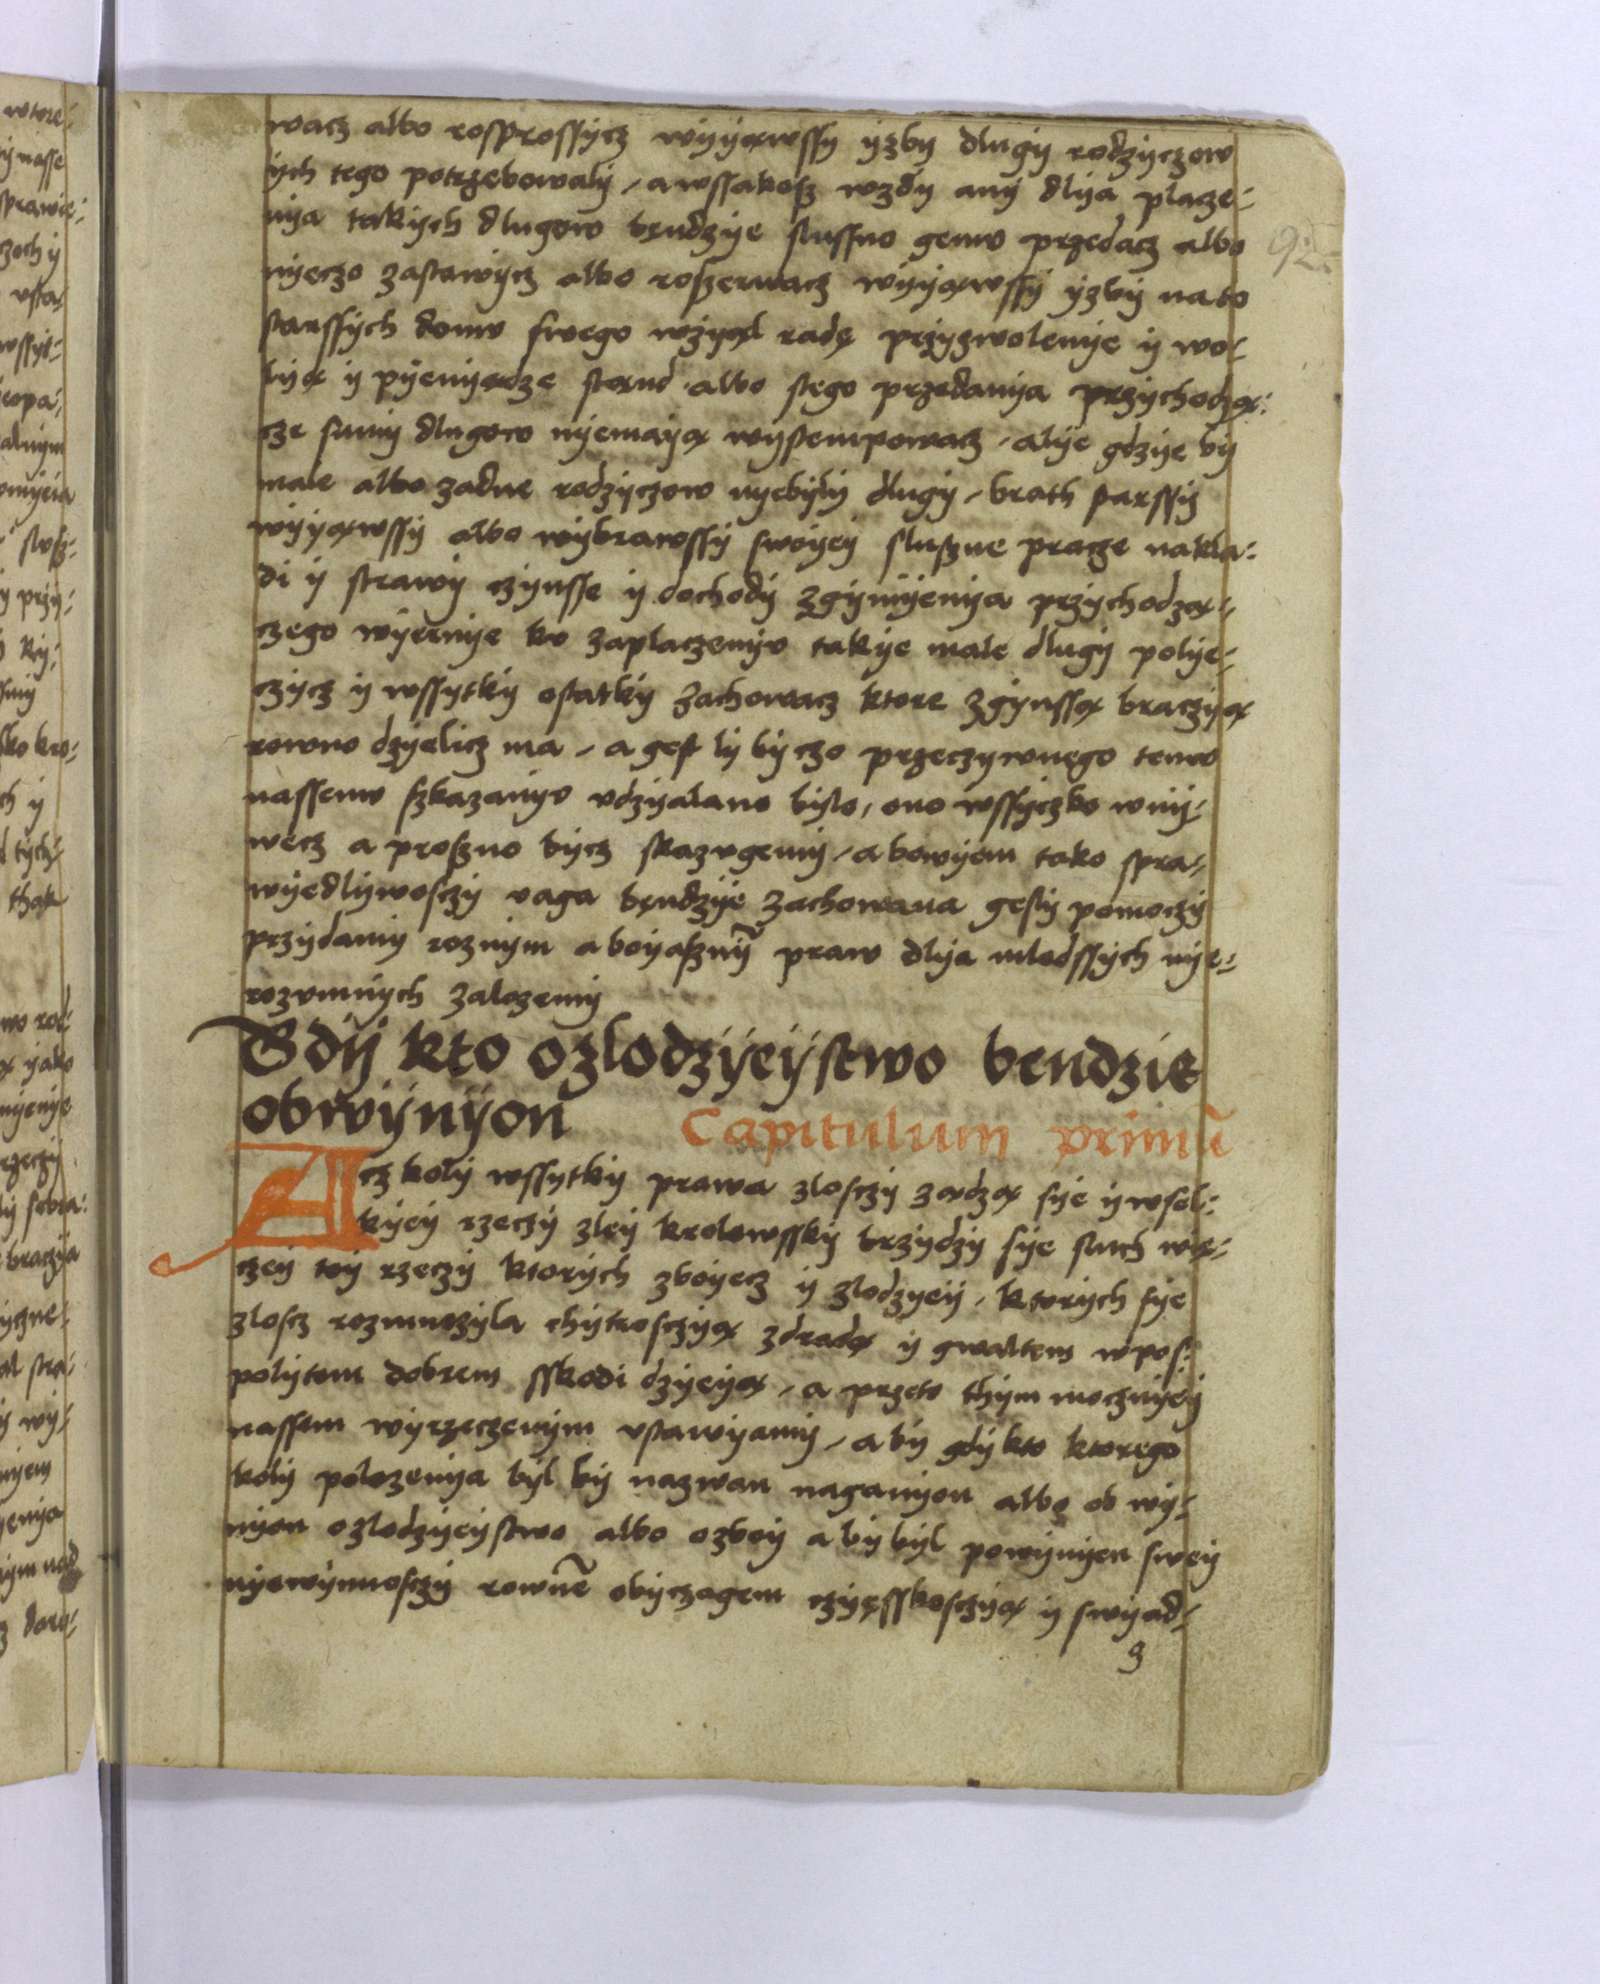 wacz albo rosprossycz wyyąwssy yzby dlugy rodzyczow
ych tego potrzebowaly / a wssakosz wzdy any dlya placze-
nya takych dlugow bęndzye slussno gemv przedacz albo
nyeczo zastawycz albo roszerwacz wyyąwssy yzby na to
starssych domv swego wzyąl radę przyzwolenye y wo-
lyą y pyenyądze stąnd albo stego przedanya przychodzą-
cze sumy dlugow nyemayą wystempowacz / alye gdzye by
male albo zadne rodzyczow nyebyly dlugy / brath starssy
wyyąwssy albo wybrawssy swoyey sluszne pracze nakla-
di y strawy czynsse y dochody zgymyenya przychodzą-
czego wyernye kv zaplaczenyv takye male dlugy polye-
czycz y wssytky ostatky zachowacz ktore zgynssą braczyą
rowno dzyelicz ma / a gest ly by czo przeczywnego temv
nassemv szkazanyv vdzyalano bylo, ono wssyczko wny-
wecz a proszno bycz skazvgemy / a bowyem tako spra-
wyedlywosczy vaga bęndzye zachowana gesly pomoczy
przydamy roznym a boyasznỹ praw dlya mlodssych nye-
rozvmnych zalozemy
Gdy kto ozlodzyeystwo bendzie
obwynyon Capitulum primũ
Acz koly wssytky prawa zlosczy ządzą sye y wsel-
kyey rzeczy zley krolowssky brzydzy sye sluch wię-
czey tvy rzeczy ktorych zboyecz y zlodzyey / ktorych sye
zloscz rozmnozyla chytrosczyą zdradą y gwaltem w pos-
polytem dobrem sskodi dzyeyą / a przeto thym mocznyey
nassem wyrzeczenym vstawyamy / a by gdy kto ktorego
koly polozenya byl by nazwan naganyon albo ob wy-
nyon ozlodzyeystwo albo ozboy a by byl powynyen swey
nyewynnosczy rownẽ obyczagem czyęsskosczyą y swyad-
3